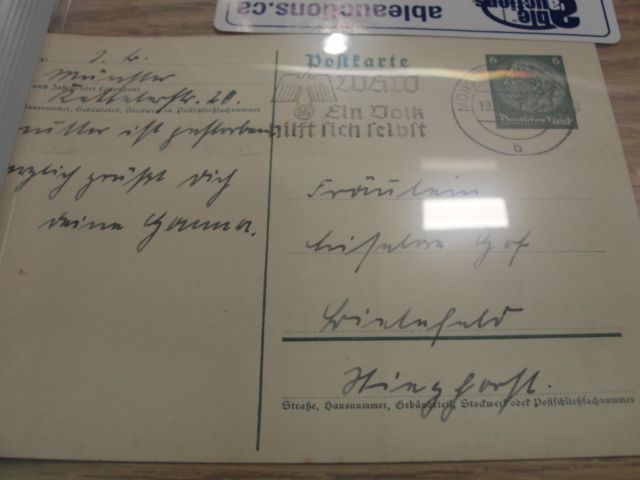 ableauctions.ca
able
auctions
Postkarte
WHW
Ein Volk
hilft sich selbst
6 6
Deutsches Reich
19
b
Münster
auch Zustell- oder Leitpostamt
Kettelerstr. 20.
Hausnummer, Gebäudeteil, Stockwerk od. Postschließfachnummer
ist gestorben
grüßt Dich
deine Hanna.
Fräulein
Bielefeld
Straße, Hausnummer, Gebäudeteil, Stockwerk oder Postschließfachnummer